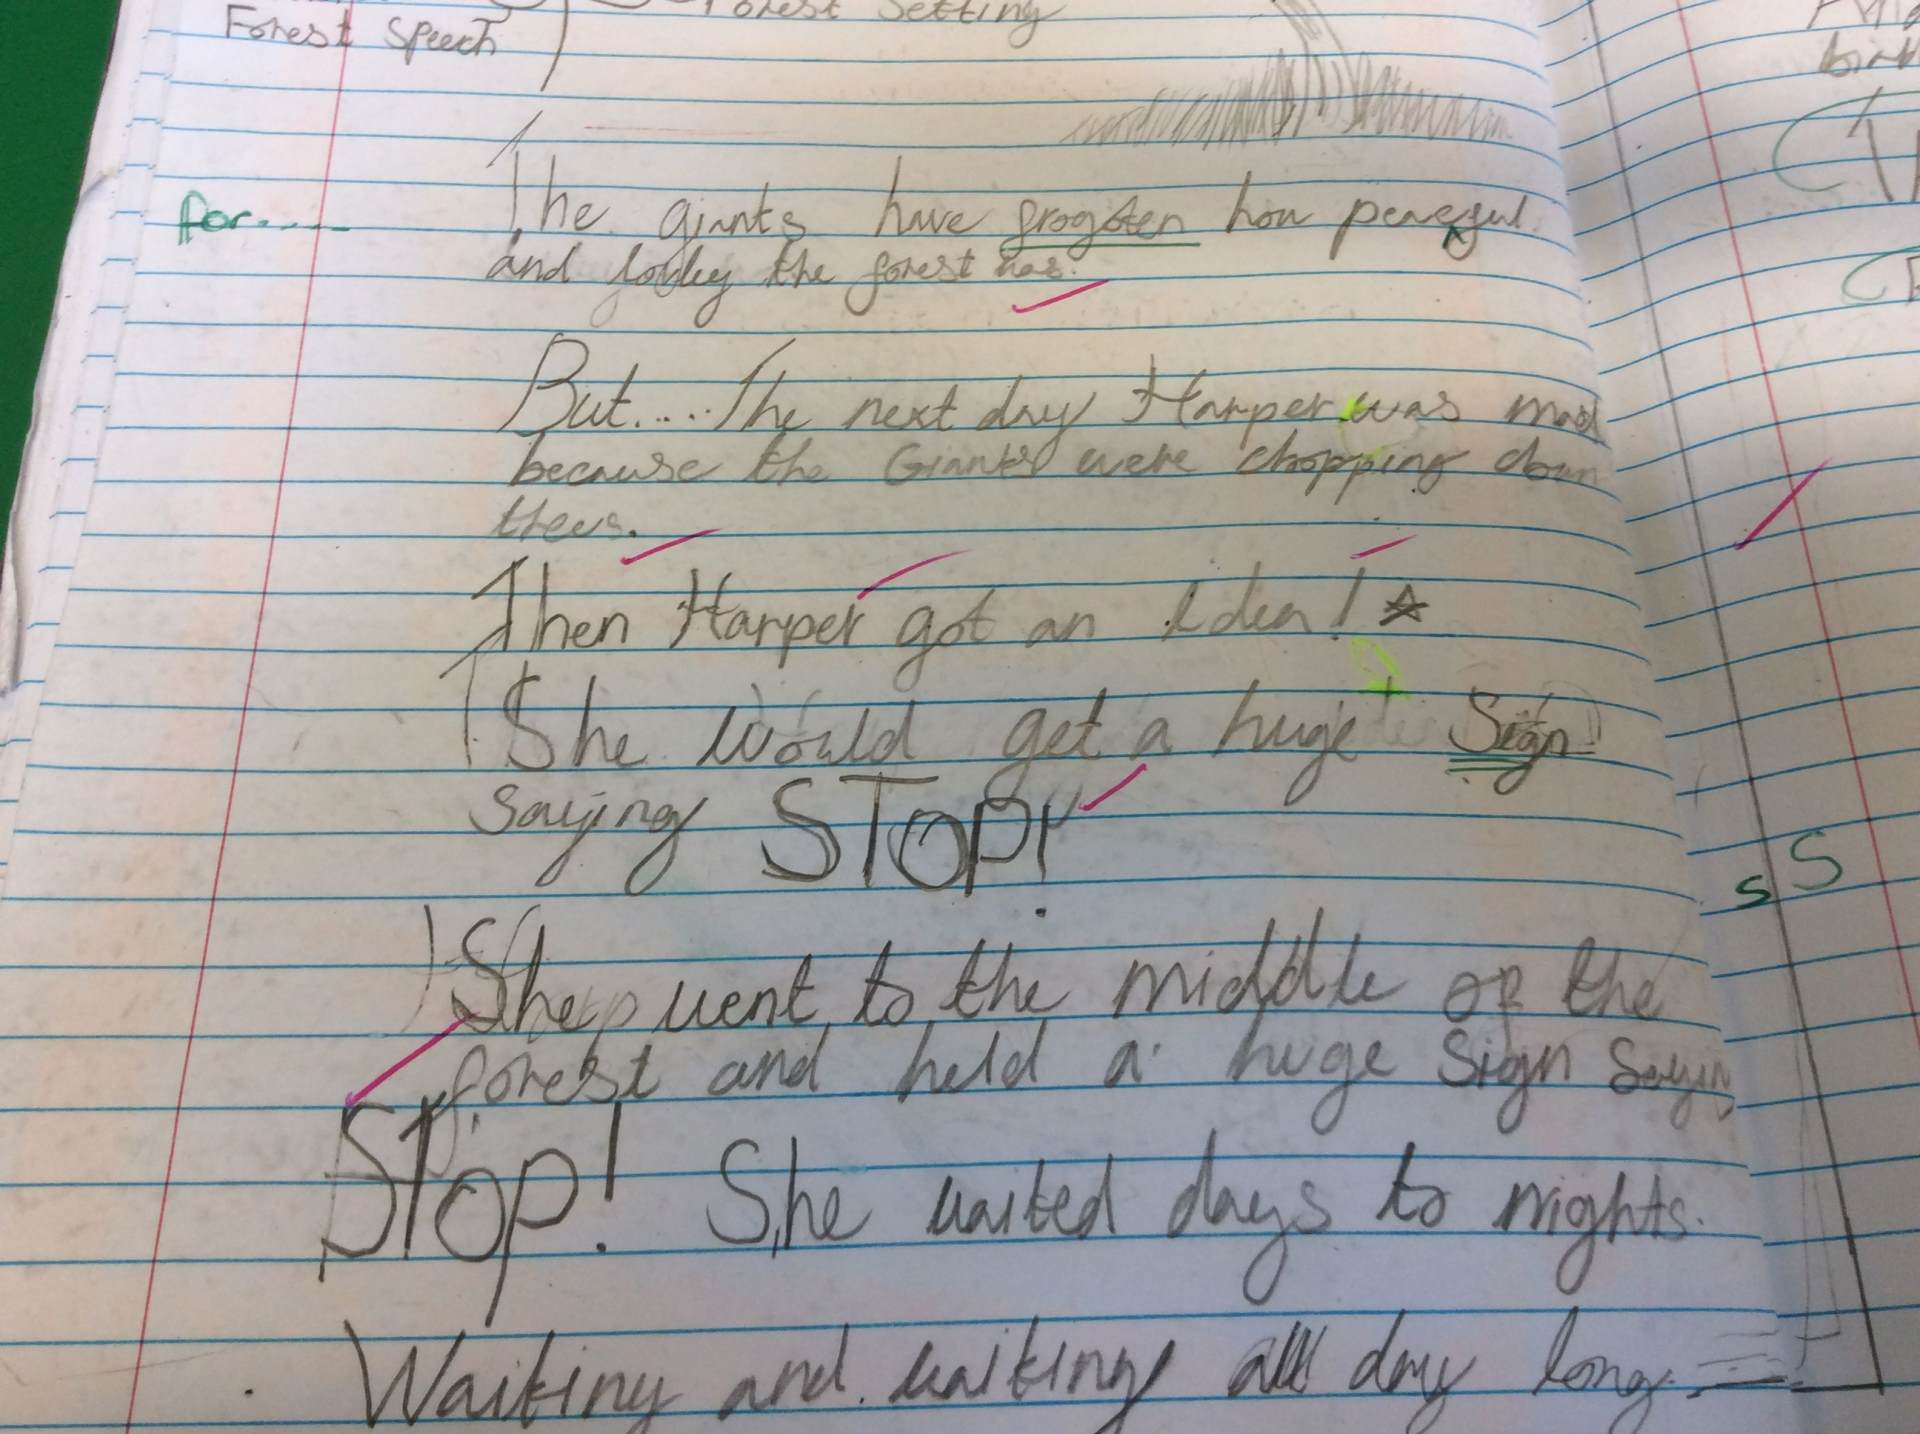 Forest Setting
Forest Speech
for.....
The giants have frogoten how peaceful
and lovley the forest has.
But.... The next day Harper was mad
because the Giants were chopping down
trees.
Then Harper got an Idea!
She would get a huge Sign
saying STOP!
She went to the middle of the
forest and held a huge Sign Sayin
STOP! She waited days to nights.
Waiting and waiting all day long.
s S